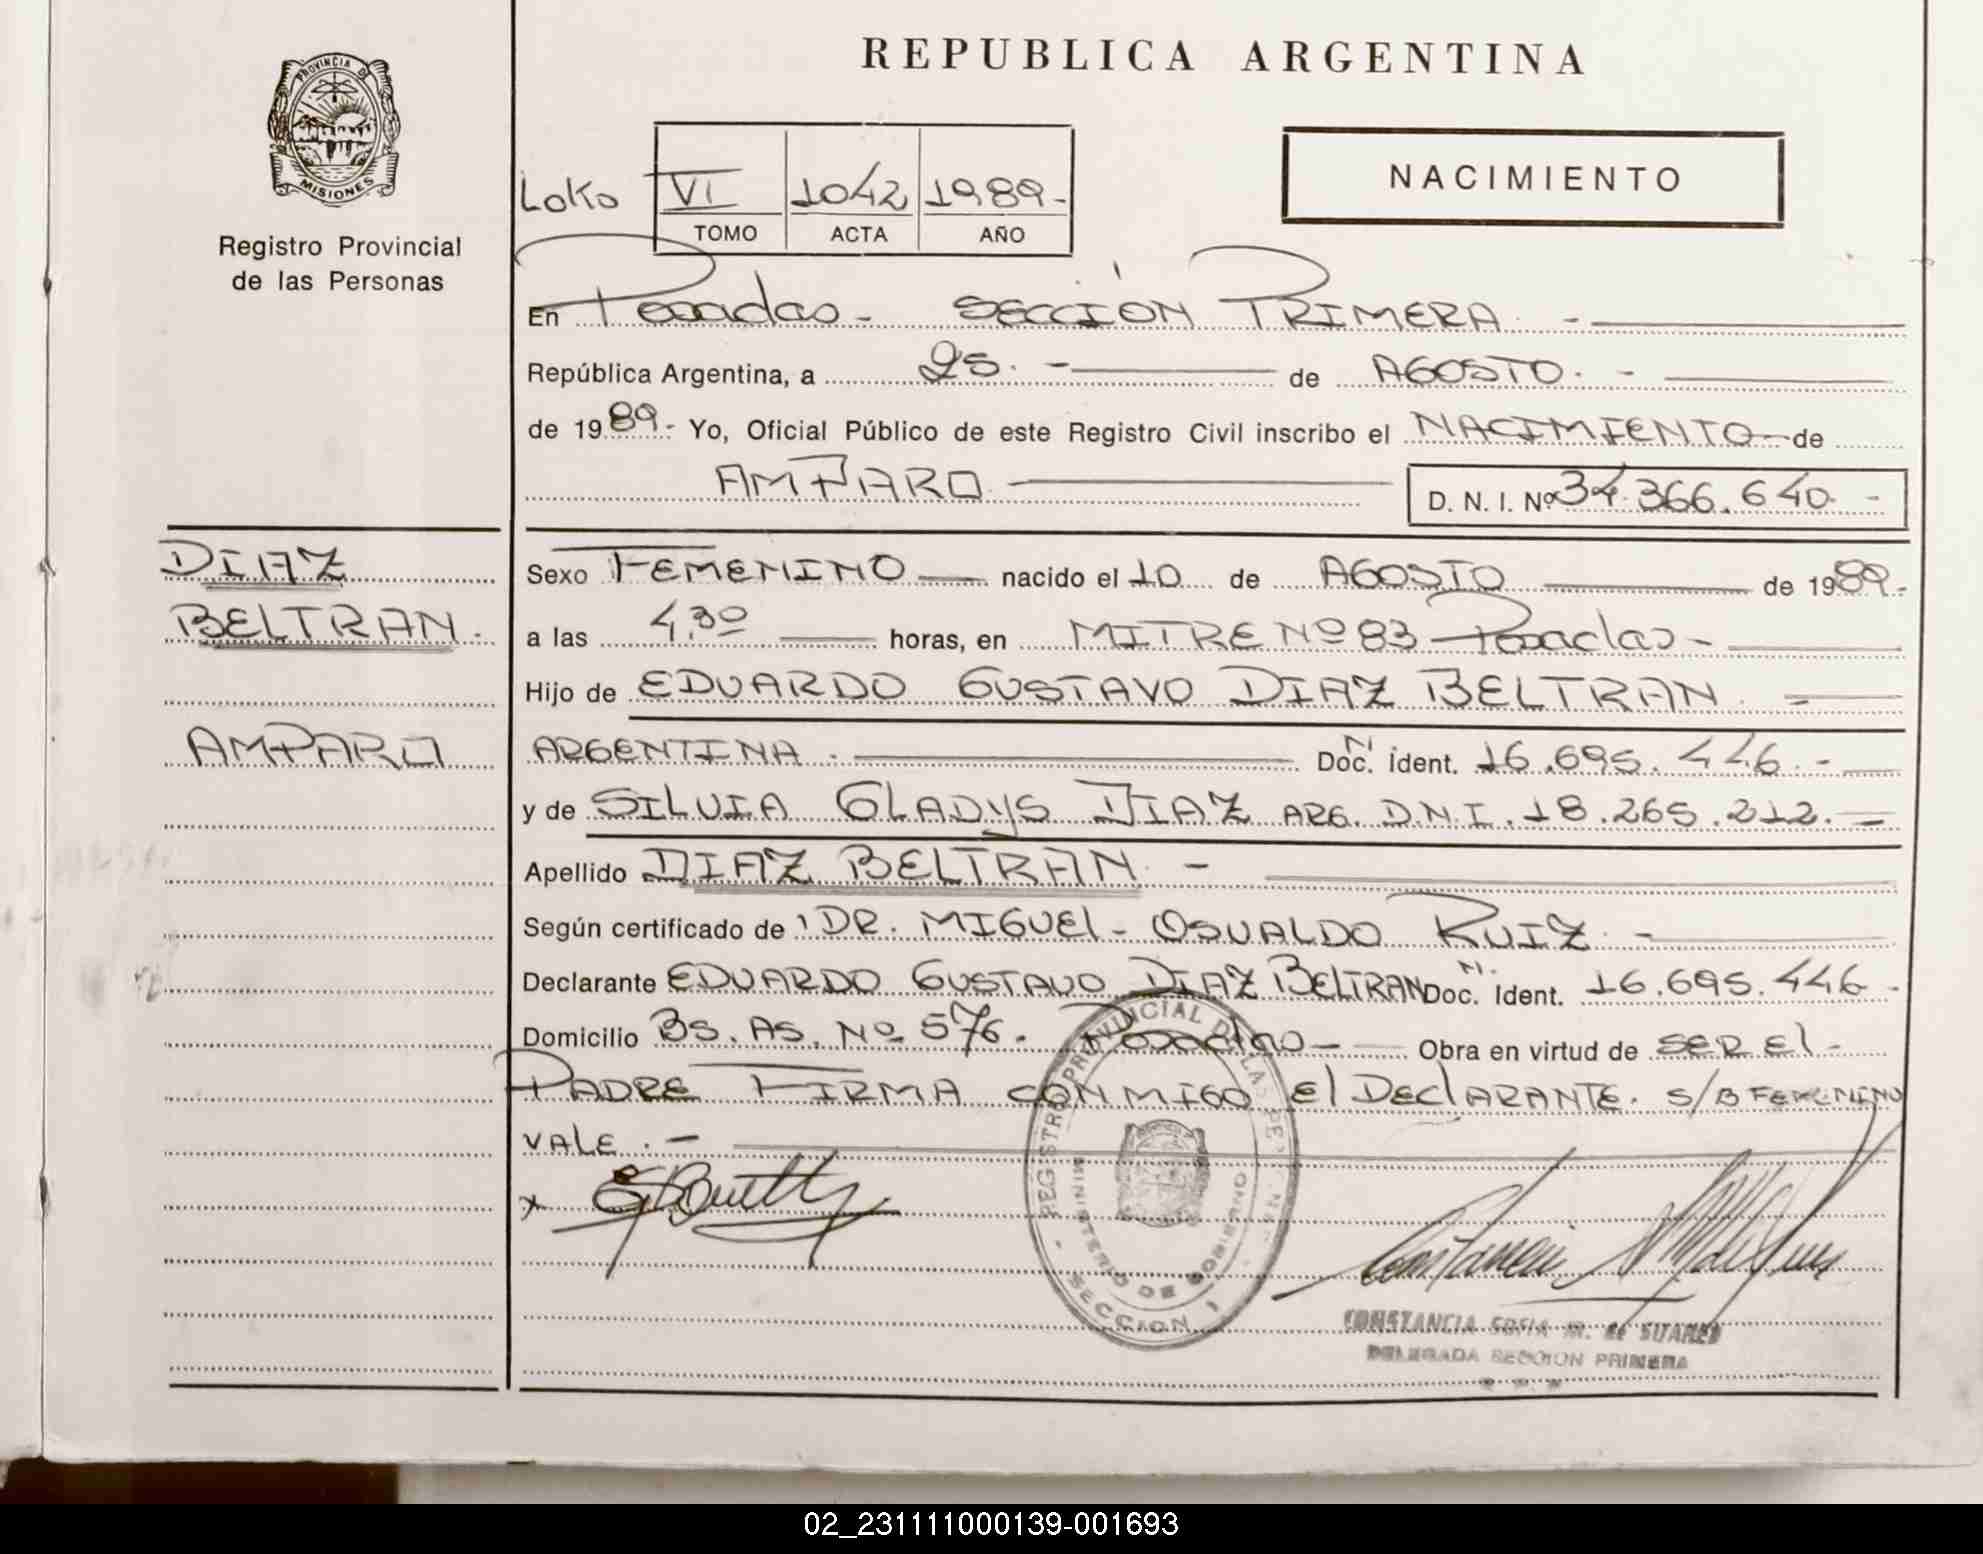 REPUBLICA ARGENTINA
PROVINCIA DE
MISIONES
Registro Provincial
de las Personas
VI 1042 1989-
TOMO ACTA AÑO
NACIMIENTO
En Posadas - SECCIÓN PRIMERA -
República Argentina, a 25. - de AGOSTO. -
de 1989.- Yo, Oficial Público de este Registro Civil inscribo el NACIMIENTO- de
AMPARO D. N. I. Nº 34.366.640. -
DIAZ
BELTRAN.
AMPARO
Sexo FEMENINO nacido el 10 de AGOSTO de 1989.-
a las 4.30 horas, en MITRE Nº 83 Posadas -
Hijo de EDUARDO GUSTAVO DIAZ BELTRAN. -
ARGENTINA. Doc. N. ident. 16.695.446. -
y de SILVIA GLADYS DIAZ ARG. D.N.I. 18.265.212. -
Apellido DIAZ BELTRAN. -
Según certificado de DR. MIGUEL - OSVALDO RUIZ. -
Declarante EDUARDO GUSTAVO DIAZ BELTRAN Doc. N. Ident. 16.695.446 -
Domicilio BS. AS. Nº 576. Posadas - Obra en virtud de SER El -
PADRE FIRMA CONMIGO El DEClARANTE. S/B FEMENINO
VALE. -
x
REGISTRO PROVINCIAL DE LAS PERSONAS
MINISTERIO DE GOBIERNO
- SECCION 1 -
CONSTANCIA SOFIA M. de
DELEGADA SECCION PRIMERA
02_231111000139-001693